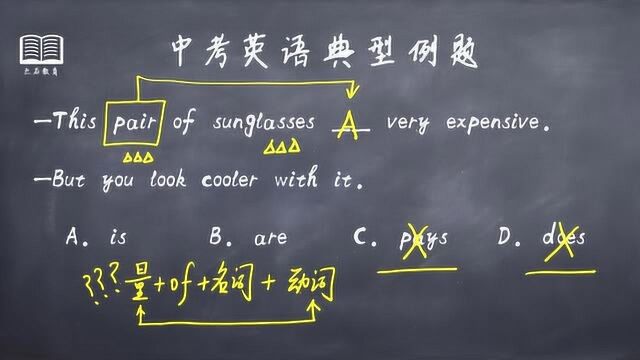 中考英语典型例题
—This pair of sunglasses A very expensive.
—But you look cooler with it.
A. is B. are C. pays D. does
???量+of+名词+动词